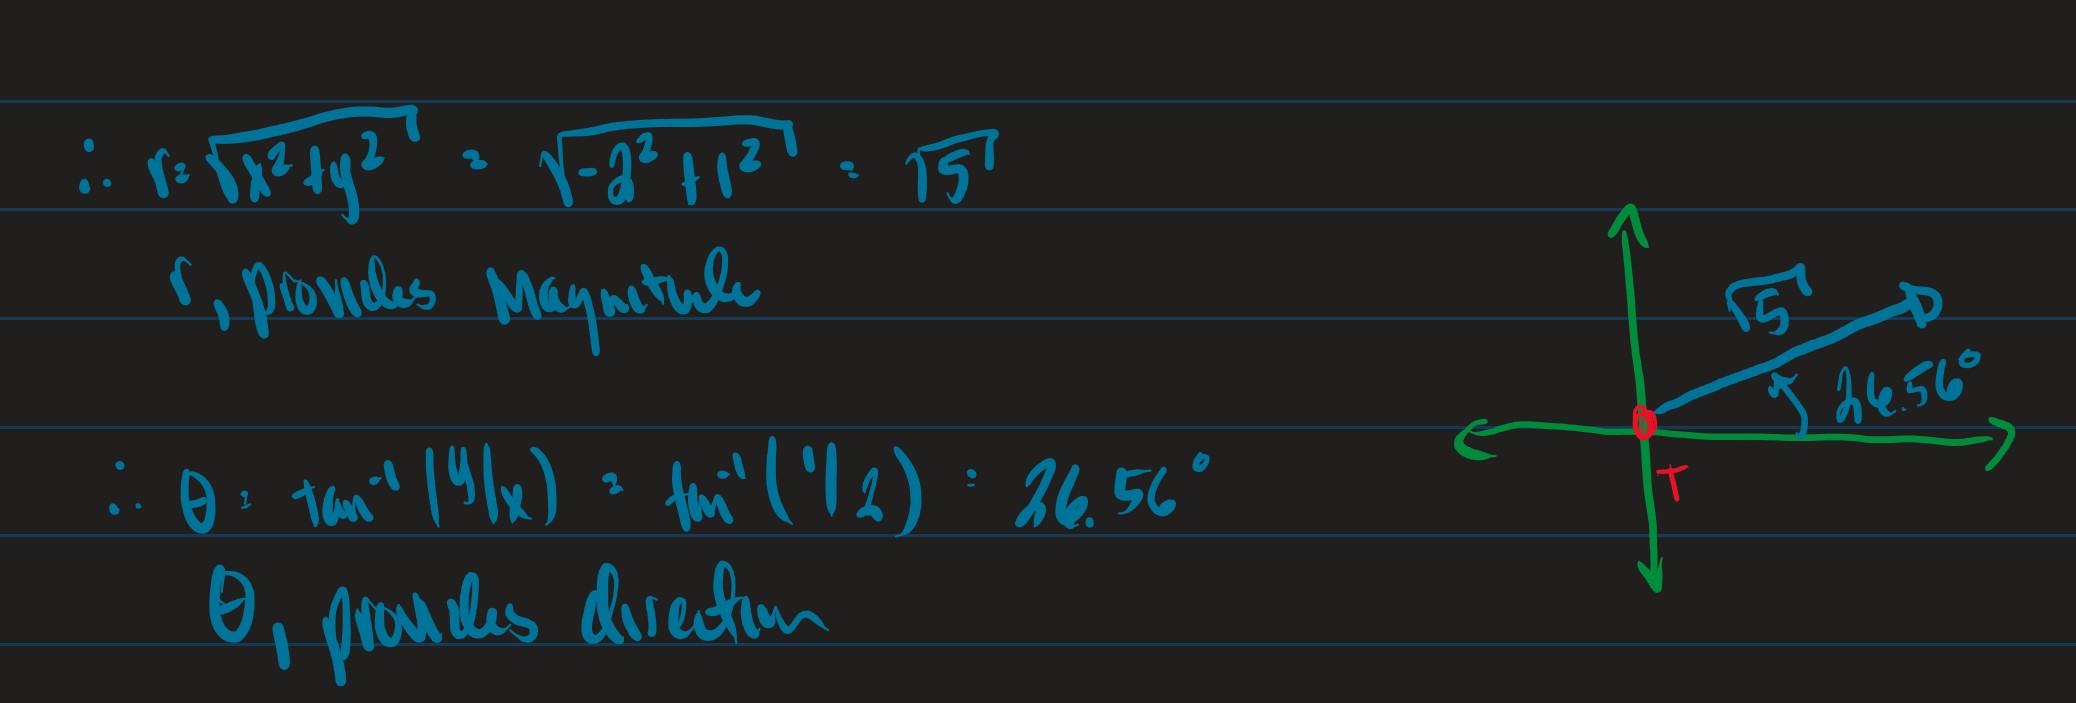 ∴ r = √(x² + y²) = √(-2² + 1²) = √5
r, provides Magnitude
√5
26.56°
T
∴ θ = tan⁻¹(y/x) = tan⁻¹(1/2) = 26.56°
θ, provides direction